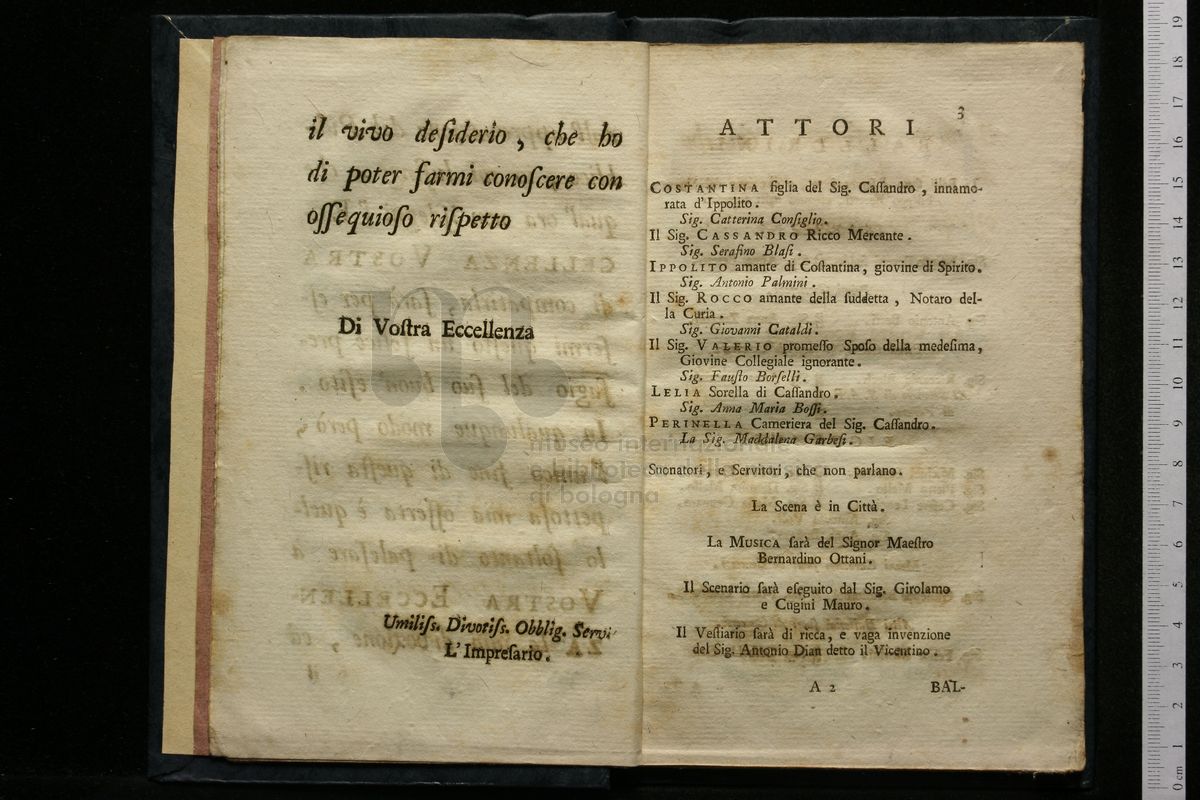 il vivo deſiderio, che ho
di poter farmi conoſcere con
oſſequioſo riſpetto
Di Voſtra Eccellenza
Umiliſs. Divotiſs. Obblig. Servi
L'Impreſario.
3
ATTORI
COSTANTINA figlia del Sig. Caſſandro, innamo-
rata d'Ippolito.
Sig. Catterina Conſiglio.
Il Sig. CASSANDRO Ricco Mercante.
Sig. Serafino Blaſi.
IPPOLITO amante di Coſtantina, giovine di Spirito.
Sig. Antonio Palmini.
Il Sig. ROCCO amante della ſuddetta, Notaro del-
la Curia.
Sig. Giovanni Cataldi.
Il Sig. VALERIO promeſſo Spoſo della medeſima,
Giovine Collegiale ignorante.
Sig. Fauſto Borſelli.
LELIA Sorella di Caſſandro.
Sig. Anna Maria Boſſi.
PERINELLA Cameriera del Sig. Caſſandro.
La Sig. Maddalena Garbeſi.
museo internazionale
Suonatori, e Servitori, che non parlano.
di bologna
La Scena è in Città.
La MUSICA ſarà del Signor Maeſtro
Bernardino Ottani.
Il Scenario ſarà eſeguito dal Sig. Girolamo
e Cugini Mauro.
Il Veſtiario ſarà di ricca, e vaga invenzione
del Sig. Antonio Dian detto il Vicentino.
A 2 BAL-
0 cm 1 2 3 4 5 6 7 8 9 10 11 12 13 14 15 16 17 18 19